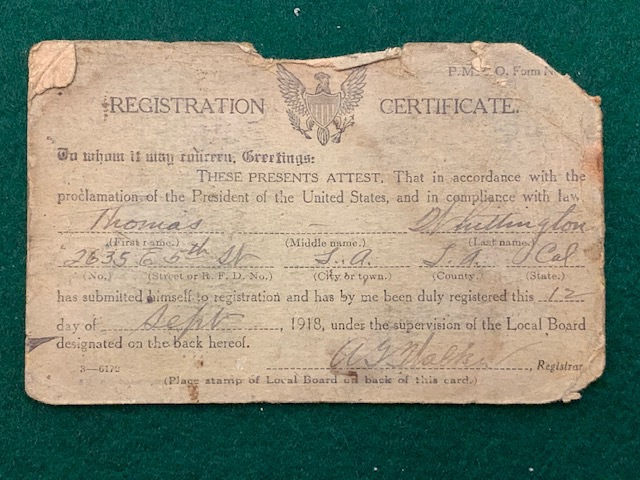 P.M.G.O. Form No
REGISTRATION CERTIFICATE.
To whom it may concern, Greetings:
THESE PRESENTS ATTEST, That in accordance with the
proclamation of the President of the United States, and in compliance with law,
Thomas — Whittington
(First name.) (Middle name.) (Last name.)
2635 E 5th St L.A. L.A. Cal
(No.) (Street or R. F. D. No.) (City or town.) (County.) (State.)
has submitted himself to registration and has by me been duly registered this 12
day of Sept, 1918, under the supervision of the Local Board
designated on the back hereof.
Walker, Registrar
3—6179
(Place stamp of Local Board on back of this card.)